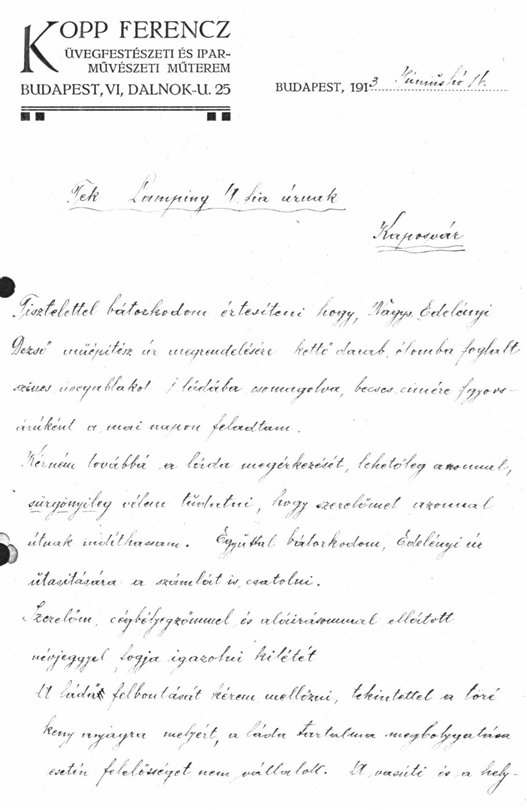 KOPP FERENCZ
ÜVEGFESTÉSZETI ÉS IPAR-
MŰVÉSZETI MŰTEREM
BUDAPEST, VI, DALNOK-U. 25
BUDAPEST, 1913 Június hó 14.
Tek Lamping A. úrnak
Kaposvár
Tisztelettel bátorkodom értesíteni hogy, Nagys. Edelényi
Dezső műépítész úr megrendelésére kettő darab, ólomba foglalt
színes üvegablakot 1 ládába csomagolva, becses címére gyors-
árúként a mai napon feladtam.
Kérném továbbá a láda megérkezését, lehetőleg azonnal,
sürgönyileg vélem tudatni, hogy szerelőmet azonnal
útnak indíthassam. Egyúttal bátorkodom, Edelényi úr
útasitására a számlát is csatolni.
Szerelőm, cégbélyegzőmmel és aláirásommal ellátott
névjeggyel fogja igazolni kilétét
A láda felbontását kérem mellőzni, tekintettel a töré
keny anyagra melyért, a láda tartalma megbolygatása
esetén felelősséget nem vállalok. A vasúti és a hely-